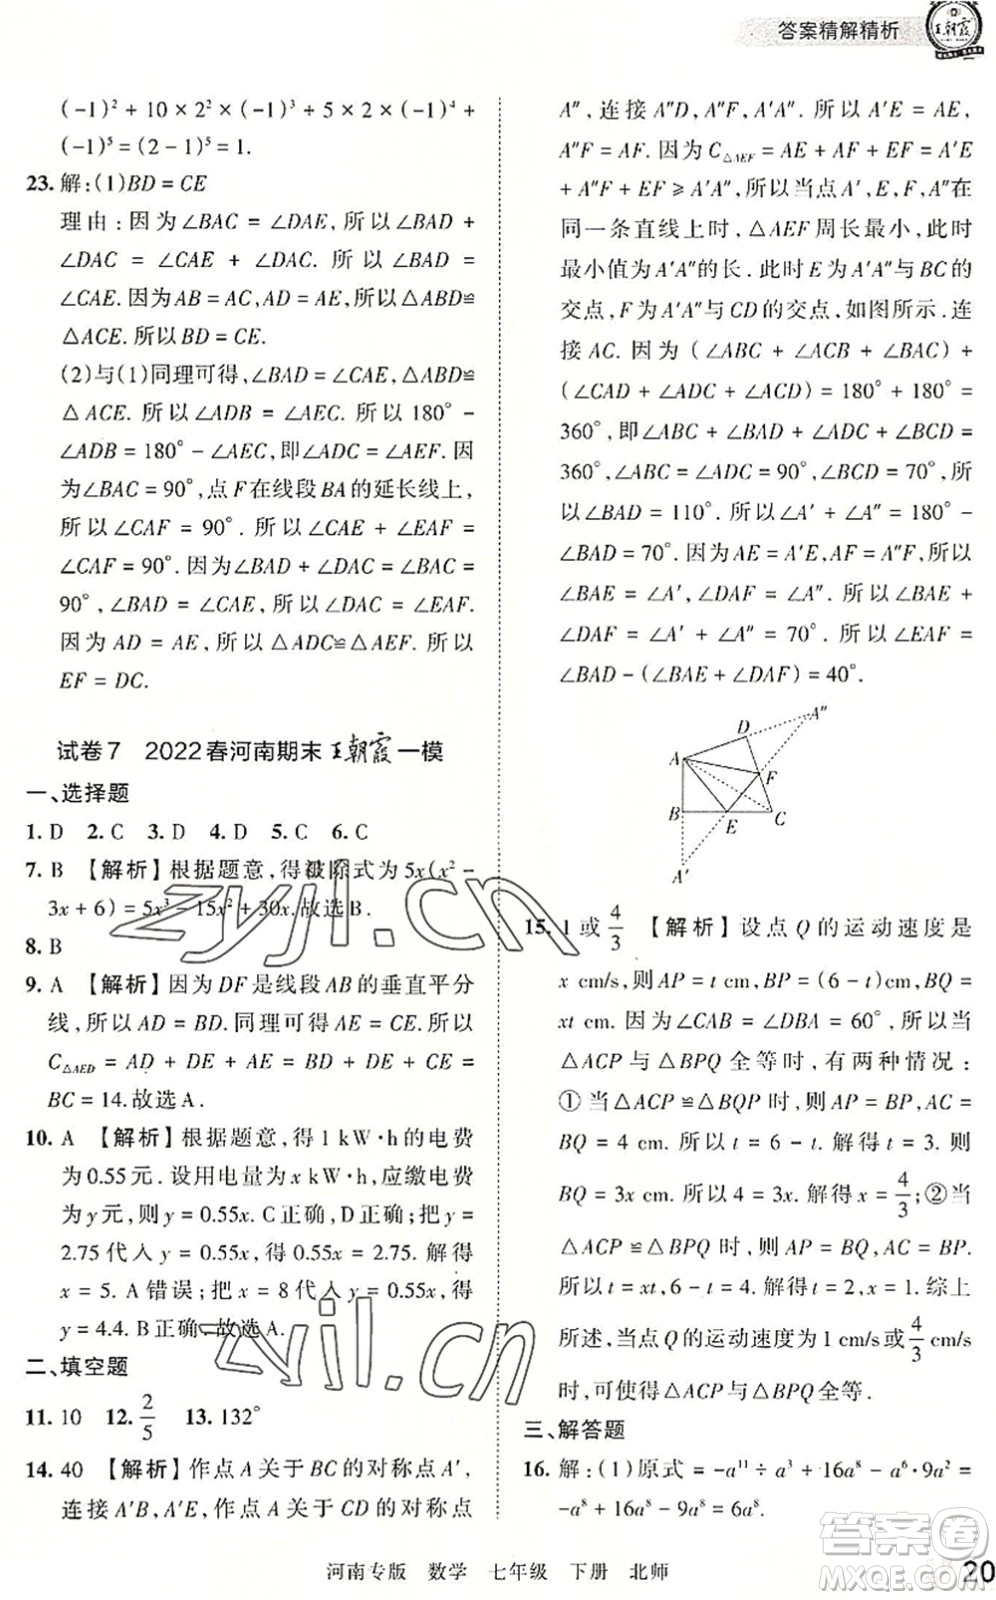 答案精解精析
王朝霞
(-1)² + 10 × 2² × (-1)³ + 5 × 2 × (-1)⁴ +
(-1)⁵ = (2 - 1)⁵ = 1.
23. 解:(1)BD = CE
理由:因为∠BAC = ∠DAE,所以∠BAD +
∠DAC = ∠CAE + ∠DAC. 所以∠BAD =
∠CAE. 因为AB = AC,AD = AE,所以△ABD≌
△ACE. 所以 BD = CE.
(2)与(1)同理可得,∠BAD = ∠CAE,△ABD≌
△ACE. 所以∠ADB = ∠AEC. 所以 180° -
∠ADB = 180° - ∠AEC,即∠ADC = ∠AEF. 因
为∠BAC = 90°,点 F 在线段 BA 的延长线上,
所以∠CAF = 90°. 所以∠CAE + ∠EAF =
∠CAF = 90°. 因为∠BAD + ∠DAC = ∠BAC =
90°,∠BAD = ∠CAE,所以∠DAC = ∠EAF.
因为 AD = AE,所以△ADC≌△AEF. 所以
EF = DC.
试卷7 2022春河南期末王朝霞一模
一、选择题
1. D 2. C 3. D 4. D 5. C 6. C
7. B 【解析】根据题意,得被除式为 5x(x² -
3x + 6) = 5x³ - 15x² + 30x. 故选 B.
8. B
9. A 【解析】因为 DF 是线段 AB 的垂直平分
线,所以 AD = BD. 同理可得 AE = CE. 所以
C△AED = AD + DE + AE = BD + DE + CE =
BC = 14. 故选 A.
10. A 【解析】根据题意,得 1 kW·h 的电费
为 0.55 元. 设用电量为 x kW·h,应缴电费
为 y 元,则 y = 0.55x. C 正确,D 正确;把 y =
2.75 代入 y = 0.55x,得 0.55x = 2.75. 解得
x = 5. A 错误;把 x = 8 代入 y = 0.55x,得
y = 4.4. B 正确. 故选 A.
二、填空题
11. 10 12. 2/5 13. 132°
14. 40 【解析】作点 A 关于 BC 的对称点 A′,
连接 A′B,A′E,作点 A 关于 CD 的对称点
A″,连接 A″D,A″F,A′A″. 所以 A′E = AE,
A″F = AF. 因为 C△AEF = AE + AF + EF = A′E
+ A″F + EF ⩾ A′A″,所以当点 A′,E,F,A″在
同一条直线上时,△AEF 周长最小,此时
最小值为 A′A″的长. 此时 E 为 A′A″与 BC 的
交点,F 为 A′A″与 CD 的交点,如图所示. 连
接 AC. 因为(∠ABC + ∠BAC + ∠BCA) +
(∠CAD + ∠ADC + ∠ACD) = 180° + 180° =
360°,即∠ABC + ∠BAD + ∠ADC + ∠BCD =
360°,∠ABC = ∠ADC = 90°,∠BCD = 70°,所
以∠BAD = 110°. 所以∠A′ + ∠A″ = 180° -
∠BAD = 70°. 因为 AE = A′E,AF = A″F,所以
∠BAE = ∠A′,∠DAF = ∠A″. 所以∠BAE +
∠DAF = ∠A′ + ∠A″ = 70°. 所以∠EAF =
∠BAD - (∠BAE + ∠DAF) = 40°.
A″
D
A
F
B E C
A′
15. 1 或 4/3 【解析】设点 Q 的运动速度是
x cm/s,则 AP = t cm,BP = (6 - t) cm,BQ =
xt cm. 因为∠CAB = ∠DBA = 60°,所以当
△ACP 与△BPQ 全等时,有两种情况:
①当△ACP≌△BQP 时,则 AP = BP,AC =
BQ = 4 cm. 所以 t = 6 - t. 解得 t = 3. 则
BQ = 3x cm. 所以 4 = 3x. 解得 x = 4/3;②当
△ACP≌△BPQ 时,则 AP = BQ,AC = BP.
所以 t = xt,6 - t = 4. 解得 t = 2,x = 1. 综上
所述,当点 Q 的运动速度为 1 cm/s 或 4/3 cm/s
时,可使得△ACP 与△BPQ 全等.
三、解答题
16. 解:(1)原式 = -a¹¹ ÷ a³ + 16a⁸ - a⁶·9a² =
-a⁸ + 16a⁸ - 9a⁸ = 6a⁸.
河南专版 数学 七年级 下册 北师
20
zyjl.cn
zyjl.cn
答案卷